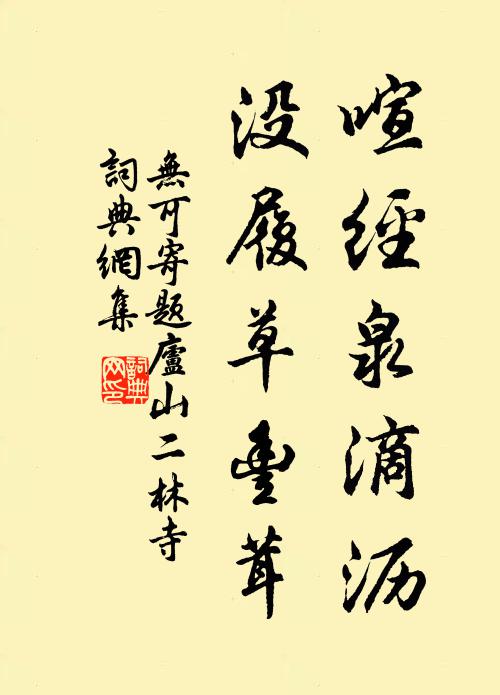 喧經泉滴沥
沒履草豊茸
無可寄題廬山二林寺
詞典網集
詞典网印